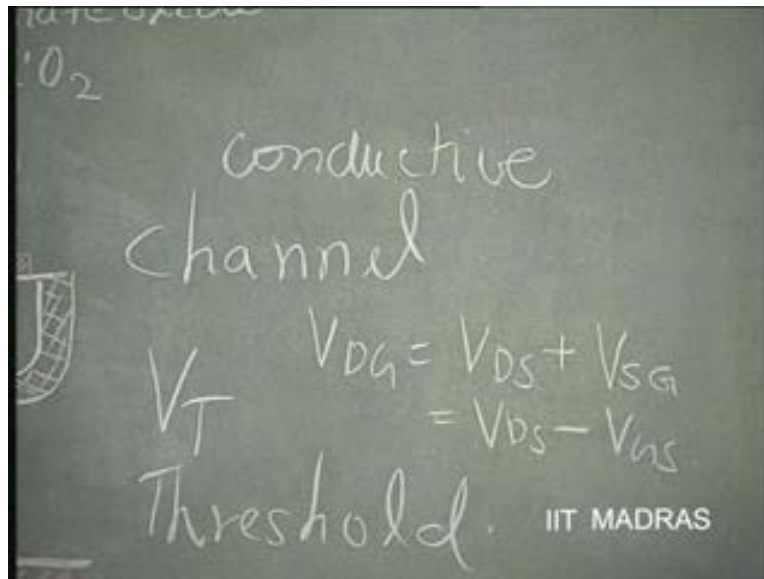 O2
conductive
channel
VDG = VDS + VSG
VT
= VDS - VGS
Threshold.
IIT MADRAS